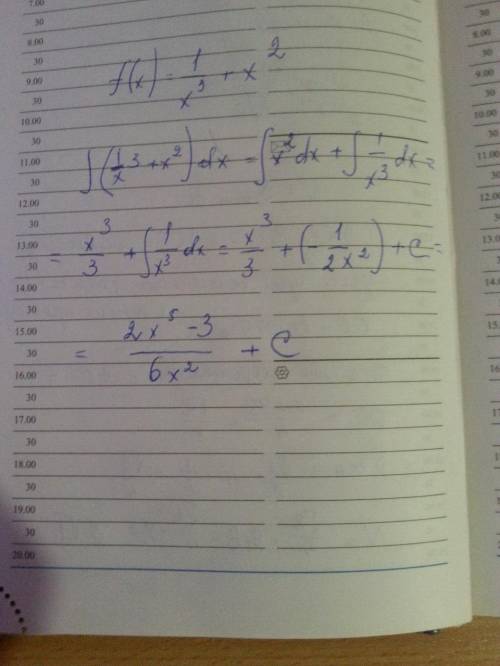 7.00
30
8.00
30
9.00
30
10.00
30
11.00
30
12.00
30
13.00
30
14.00
30
15.00
30
16.00
30
17.00
30
18.00
30
19.00
30
20.00
f(x) = 1/x³ + x²
∫(1/x³ + x²) dx = ∫x² dx + ∫1/x³ dx =
= x³/3 + ∫1/x³ dx = x³/3 + (-1/2x²) + C =
= (2x⁵ - 3)/6x² + C